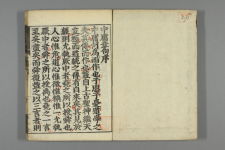 中庸章句序
中庸何為而作也子思子憂道學之
失其傳而作也蓋自上古聖神繼天
立極而道統之傳有自來矣其見於
經則允執厥中者堯之所以授舜也
人心惟危道心惟微惟精惟一允執
厥中者舜之所以授禹也堯之一言
至矣盡矣而舜復益之以三言者則